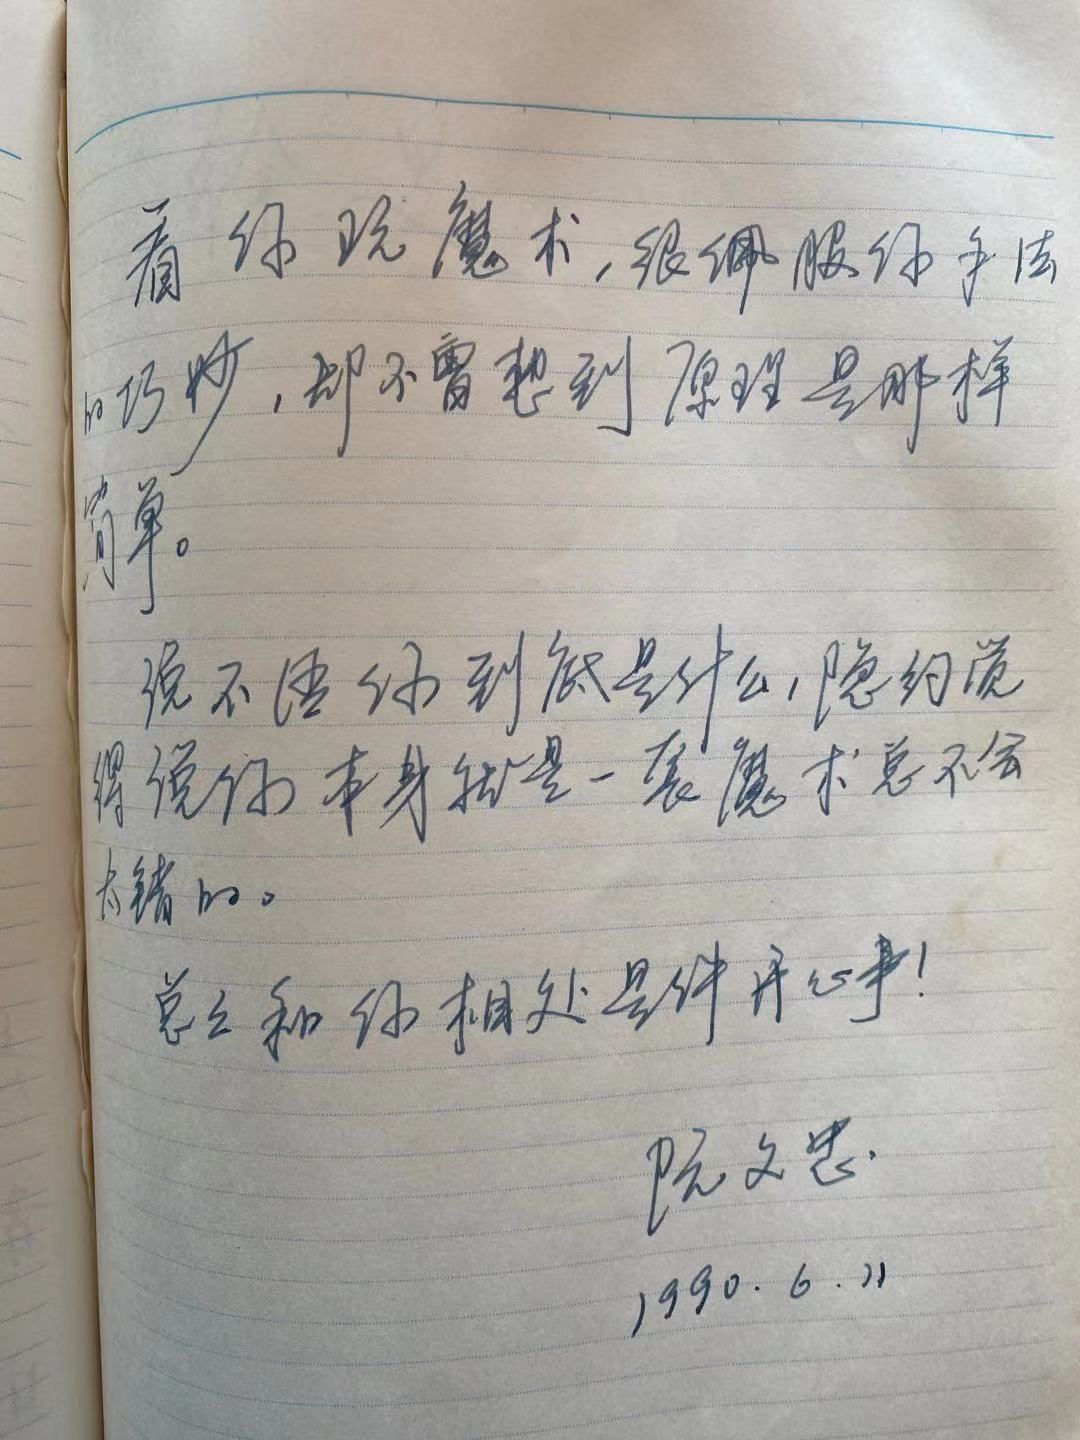 看你玩魔术,很佩服你手法
的巧妙,却不曾想到原理是那样
简单。
说不清你到底是什么,隐约觉
得说你本身就是一套魔术总不会
太错的。
总之和你相处是件开心事!
阮文忠.
1990.6.21